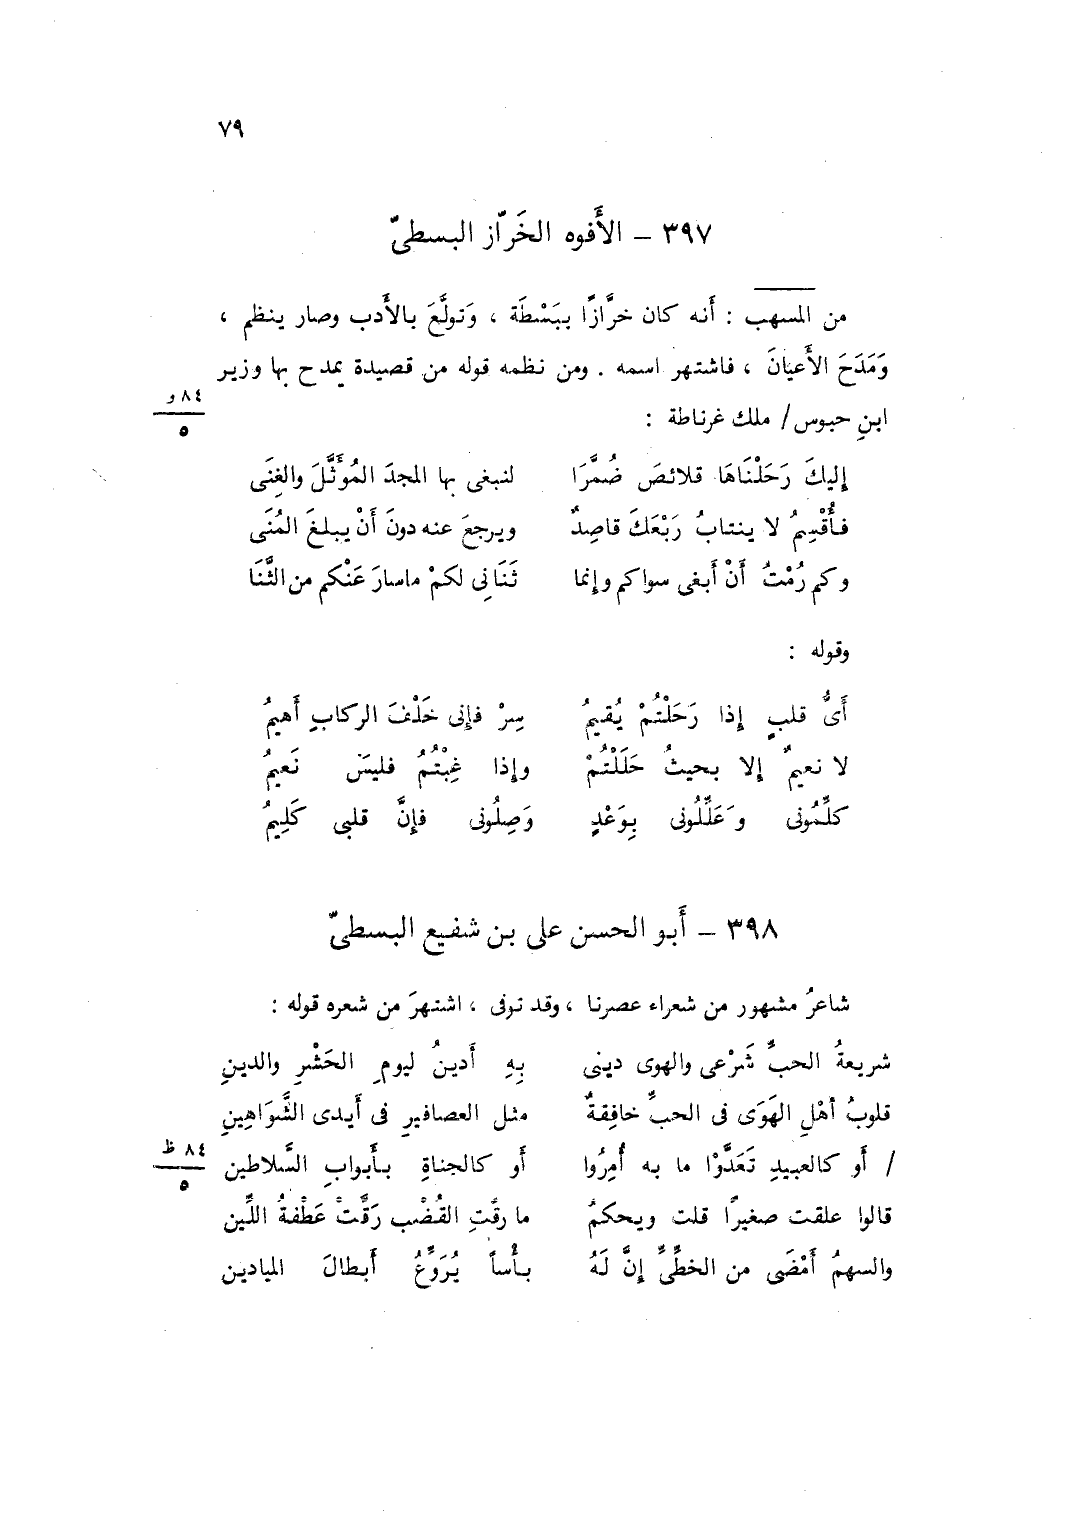 ٧٩
٣٩٧ – الأَفوه الخَرّاز البسطىّ
من المسهب : أَنه كان خرَّازًا ببَسْطَة ، وَتولَّعَ بالأَدب وصار ينظم ،
وَمَدَحَ الأَعيانَ ، فاشتهر اسمه . ومن نظمه قوله من قصيدة يمدح بها وزير
٨٤ و
٥
ابنِ حبوس / ملك غرناطة :
إِليكَ رَحَلْنَاهَا قلائصَ ضُمَّرَا لنبغى بها المجدَ المُوَثَّلَ والغِنَى
فأُقْسِمُ لا ينتابُ رَبْعَكَ قاصِدٌ ويرجعَ عنه دونَ أَنْ يبلغَ المُنَى
وكم رُمْتُ أَنْ أَبغى سواكم وإنما ثَنَانِى لكمْ ماسارَ عَنْكم من الثَّنَا
وقوله :
أَىُّ قلبٍ إِذا رَحَلْتُمْ يُقيمُ سِرْ فإِنى خَلْفَ الركابِ أَهيمُ
لا نعيمٌ إِلا بحيثُ حَلَلْتُمْ وإذا غِبْتُمُ فليسَ نَعيمُ
كلِّمُونى وعَلِّلُونى بِوَعْدٍ وَصِلُونى فإنَّ قلبى كَلِيمُ
٣٩٨ – أَبو الحسن على بن شفيع البسطىّ
شاعرُ مشهور من شعراء عصرنا ، وقد توفى ، اشتهرَ من شعره قوله :
شريعةُ الحبِّ شَرْعى والهوى دينى بِهِ أَدينُ ليومِ الحَشْرِ والدينِ
قلوبُ أهْلِ الهَوَى فى الحبِّ خافِقةٌ مثل العصافيرِ فى أَيدى الشَّوَاهِينِ
٨٤ ظ
٥
/ أَو كالعبيدِ تَعَدَّوْا ما به أُمِرُوا أَو كالجناةِ بأَبوابِ السَّلاطين
قالوا علقت صغيرًا قلت ويحكمُ ما رقَّتِ القُضْب رَقَّتْ عَطْفةُ اللِّين
والسهمُ أَمْضَى من الخطِّىِّ إنَّ لَهُ بأْساً يُرَوِّعُ أَبطالَ الميادين